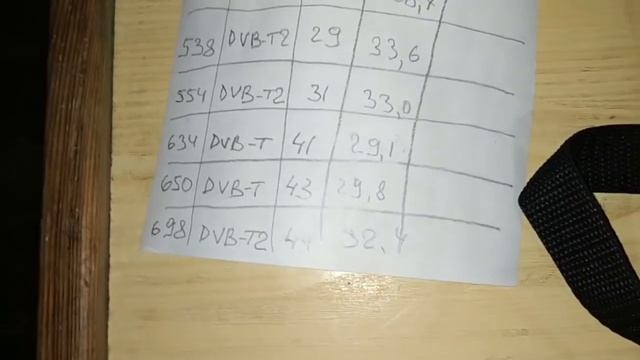 538 DVB-T2 29 33,6
554 DVB-T2 31 33,0
634 DVB-T 41 29,1
650 DVB-T 43 29,8
698 DVB-T2